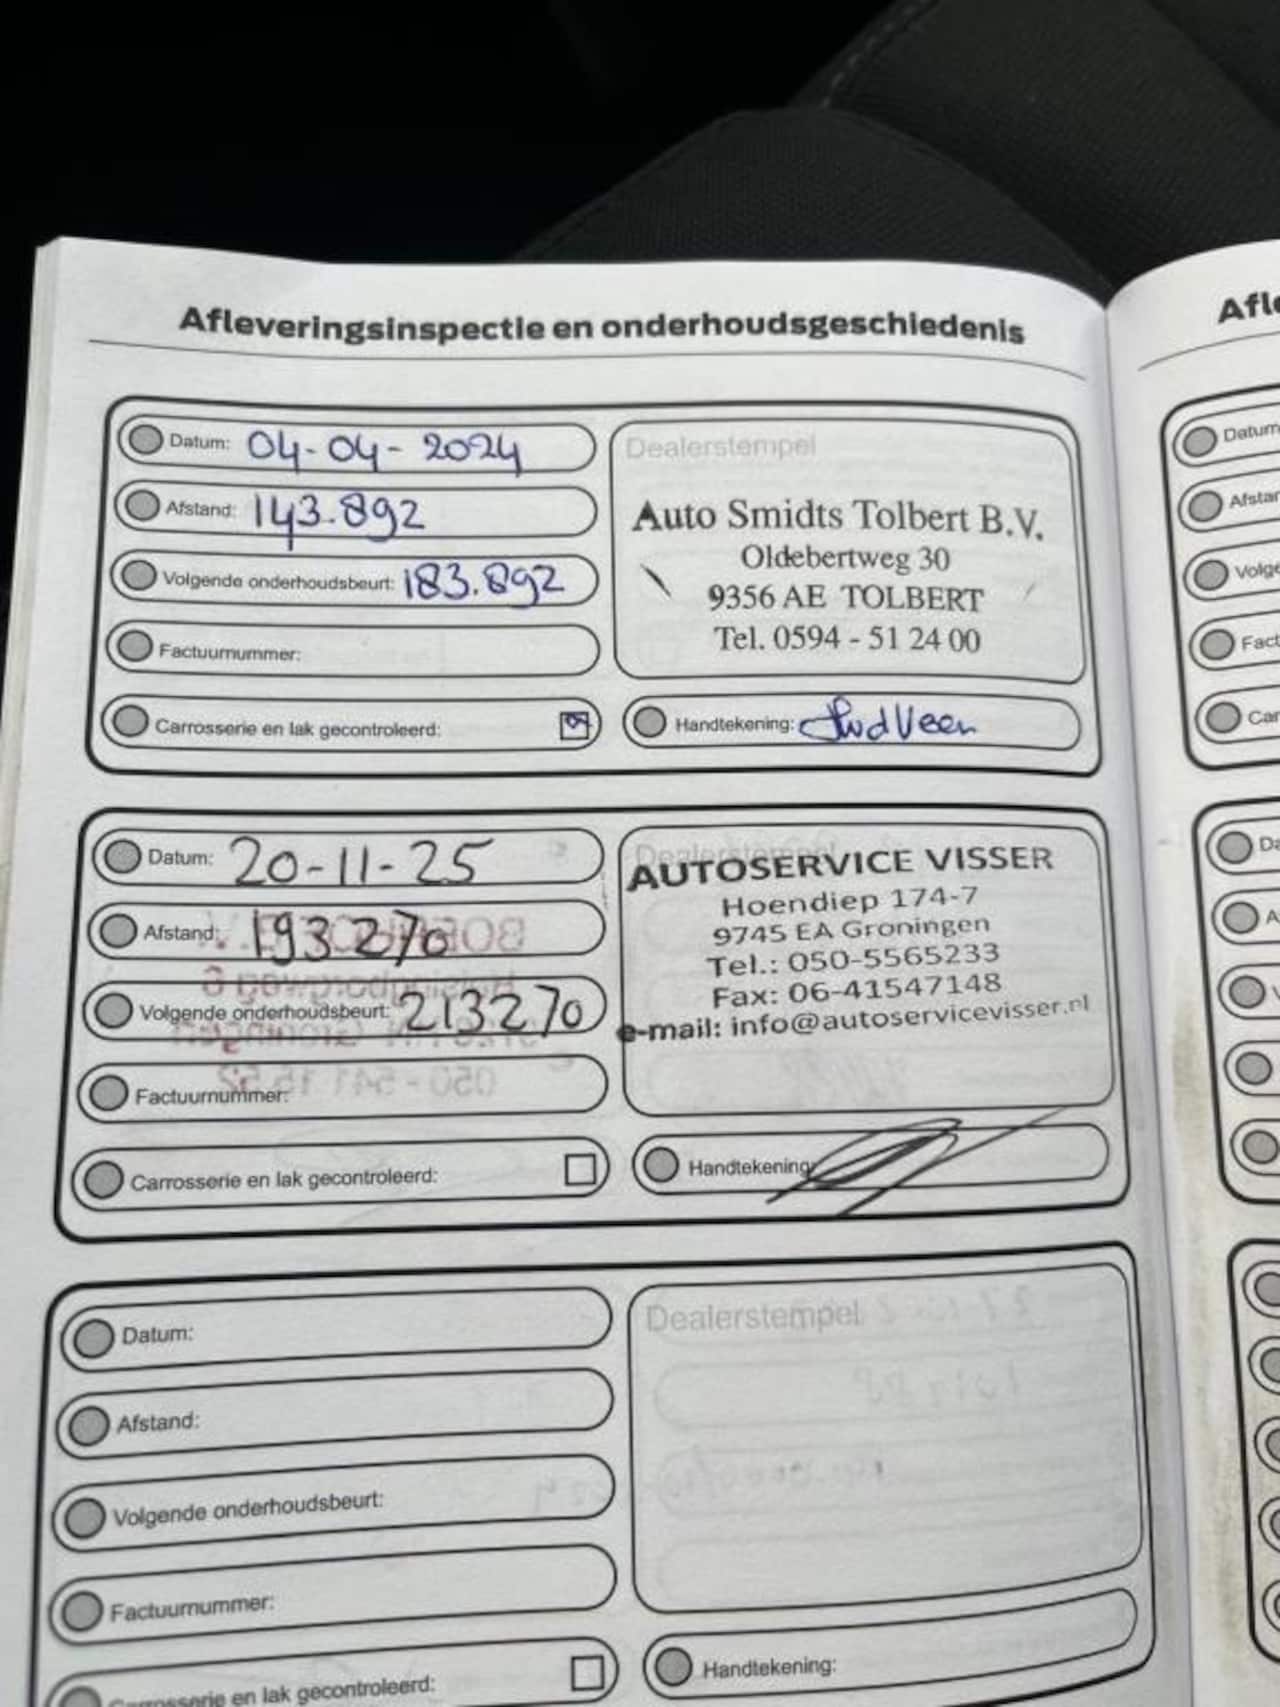 Afleveringsinspectie en onderhoudsgeschiedenis
Datum: 04-04-2024
Afstand: 143.892
Volgende onderhoudsbeurt: 183.892
Factuurnummer:
Carrosserie en lak gecontroleerd:
Dealerstempel
Auto Smidts Tolbert B.V.
Oldebertweg 30
9356 AE TOLBERT
Tel. 0594 - 51 24 00
Handtekening:
Datum: 20-11-25
Afstand: 193270
Volgende onderhoudsbeurt: 213270
Factuurnummer:
Carrosserie en lak gecontroleerd:
Dealerstempel
AUTOSERVICE VISSER
Hoendiep 174-7
9745 EA Groningen
Tel.: 050-5565233
Fax: 06-41547148
e-mail: info@autoservicevisser.nl
Handtekening:
Datum:
Afstand:
Volgende onderhoudsbeurt:
Factuurnummer:
Carrosserie en lak gecontroleerd:
Dealerstempel
Handtekening:
Afle
Datum
Afstan
Volge
Fact
Car
Da
A
V